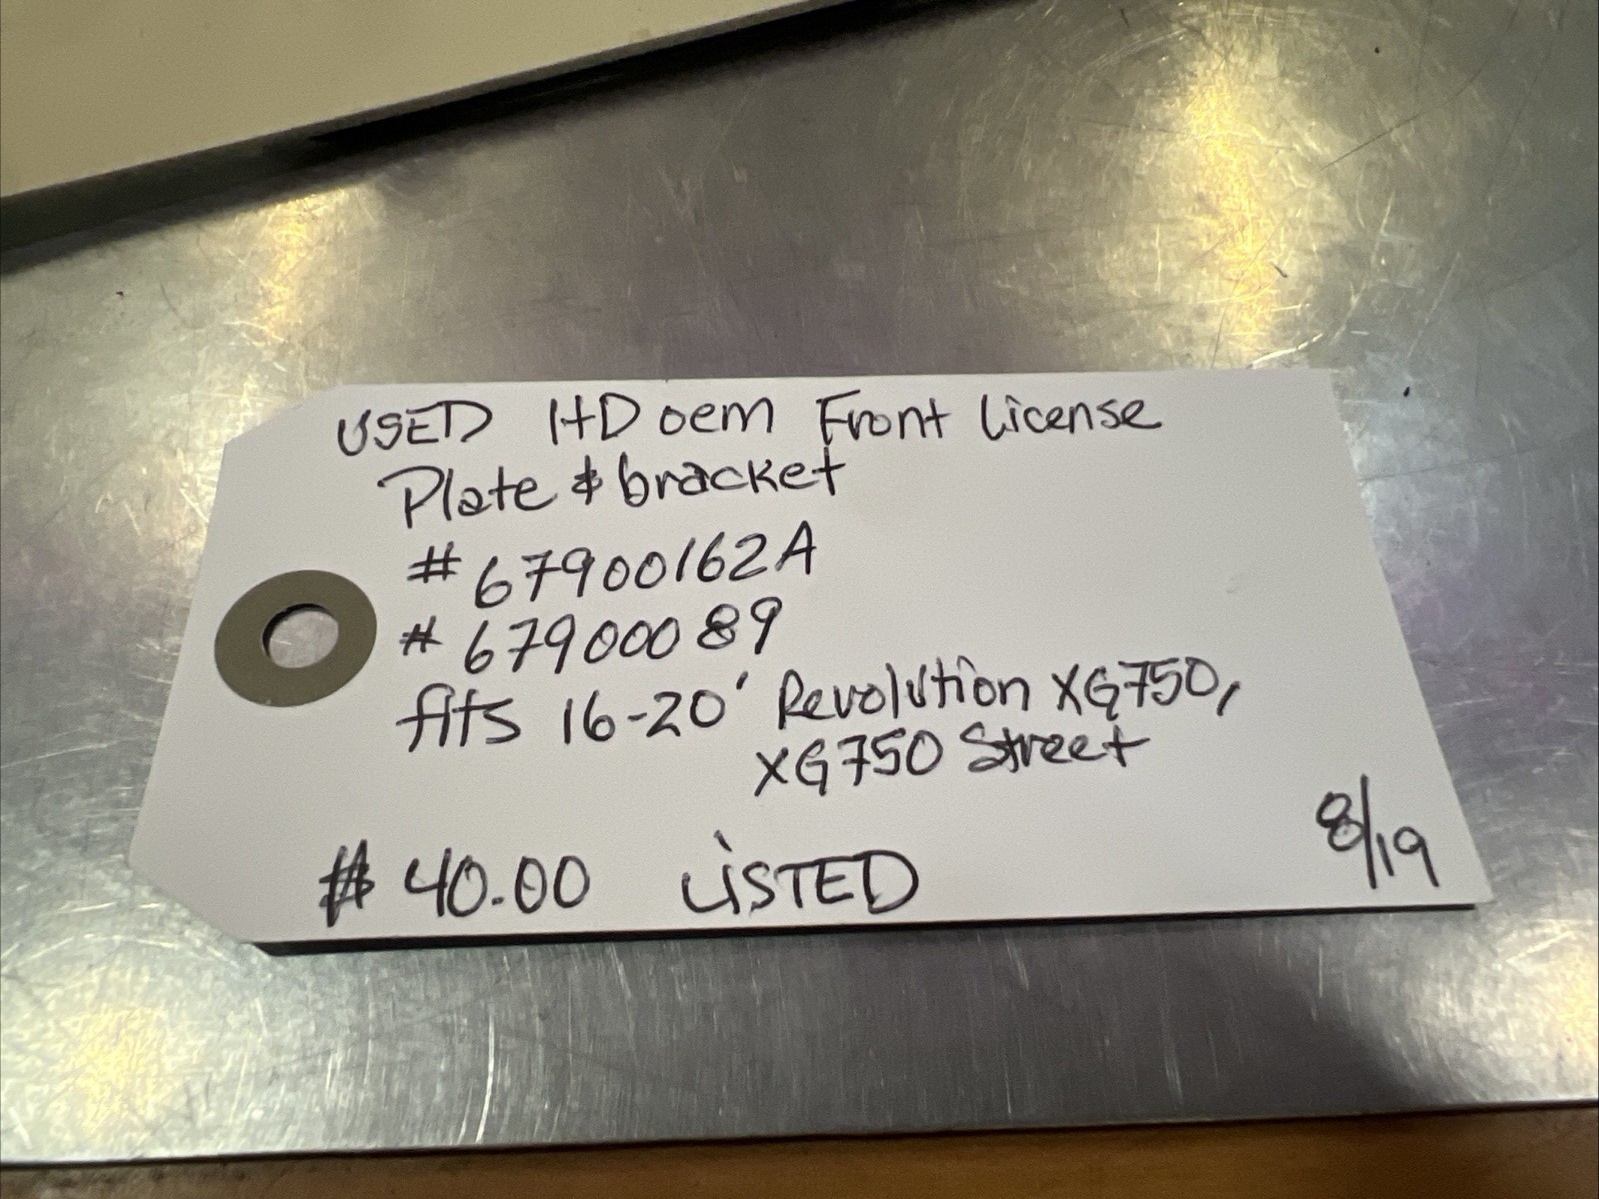 USED HD oem Front License
Plate & bracket
# 67900162A
# 67900089
fits 16-20' Revolution XG750,
XG750 Street
8/19
$ 40.00 LiSTED